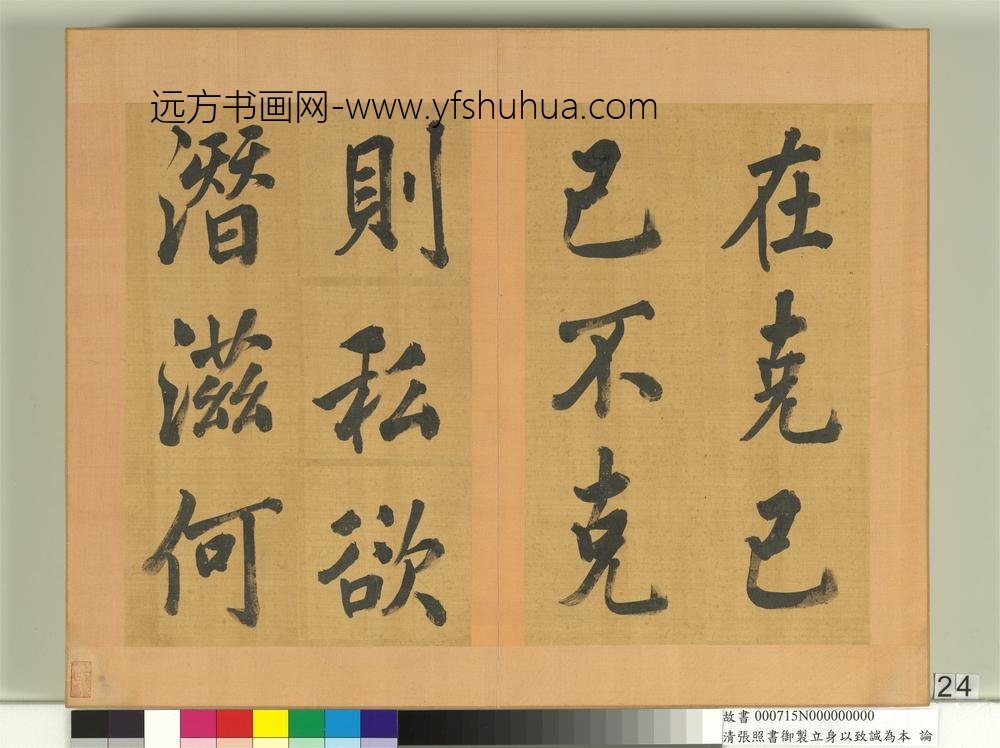 远方书画网-www.yfshuhua.com
在克己
己不克
則私欲
潛滋何
24
故書 000715N000000000
清張照書御製立身以致誠為本 論